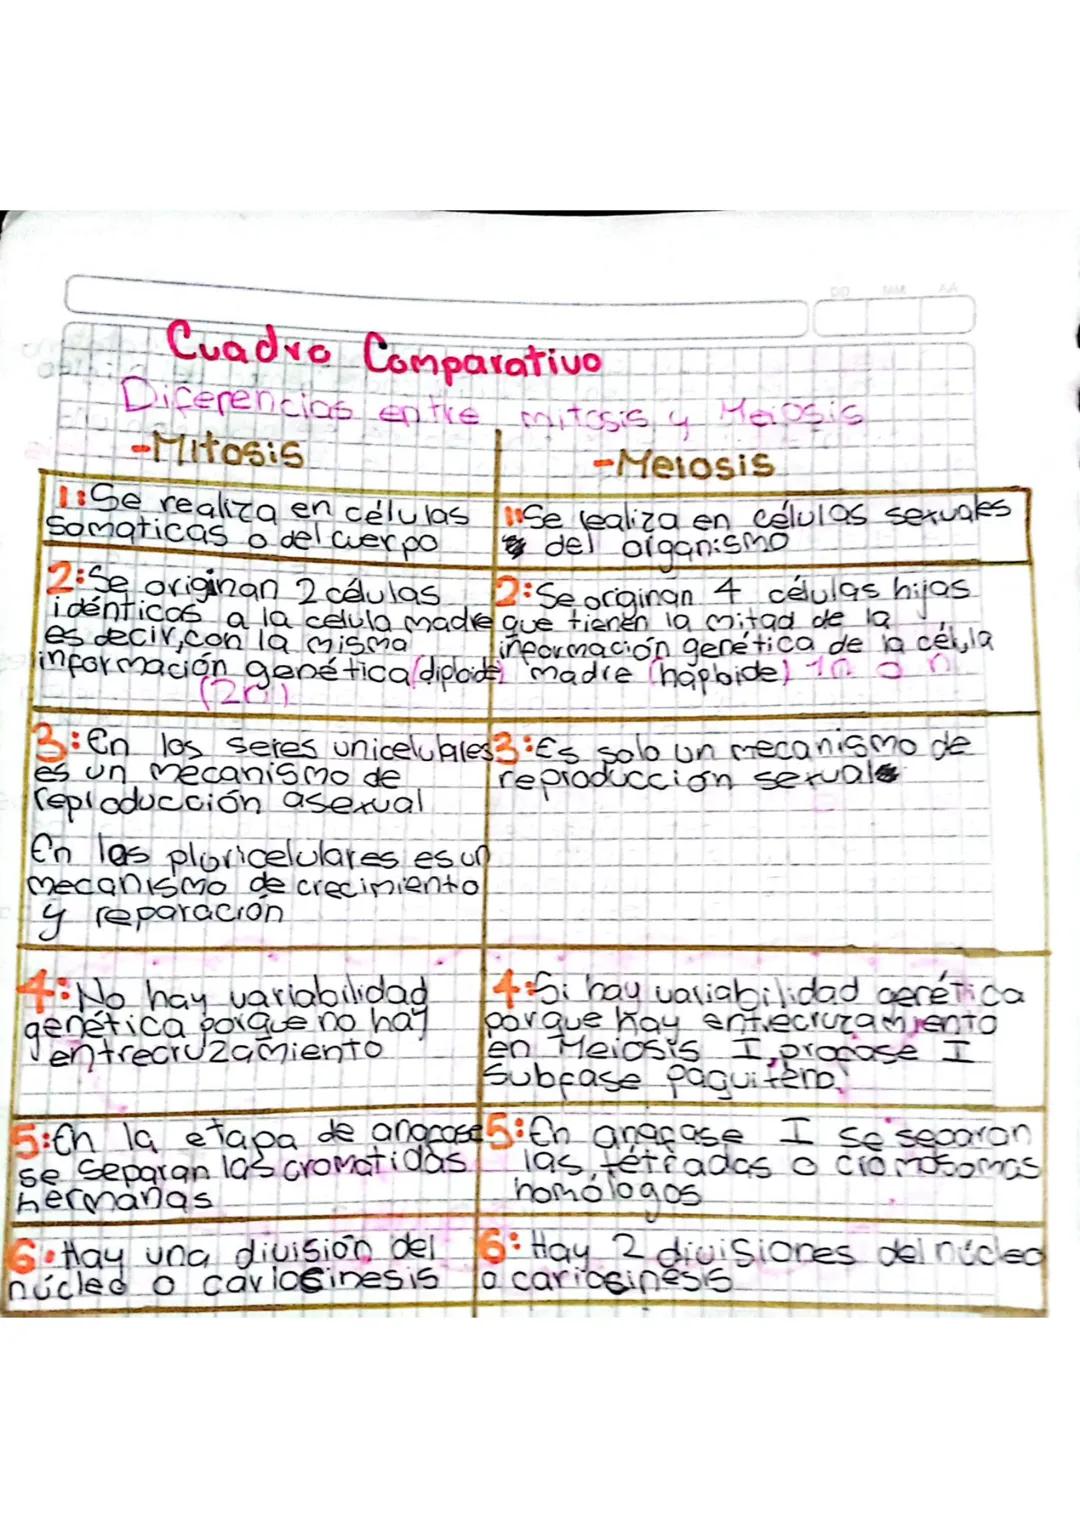 DD MM AA
Cuadro Comparativo
Diferencias entre mitosis y Meiosis
-Mitosis
-Meiosis
1:Se realiza en células
somaticas o del cuerpo
1:Se realiza en células sexuales
del organismo
2:Se originan 2 células
idénticas a la celula madre
es decir, con la misma
información genética (diploide)
(2n)
2:Se originan 4 células hijas
que tienen la mitad de la
información genética de la célula
madre (haploide) 1n o n
3:En los seres unicelulares
es un mecanismo de
reproducción asexual
En las pluricelulares es un
mecanismo de crecimiento
y reparación
3:Es solo un mecanismo de
reproduccion sexual
4:No hay variabilidad
genética porque no hay
entrecruzamiento
4:Si hay variabilidad genética
porque hay entrecruzamiento
en Meiosis I, profase I
subfase paquiteno.
5:En la etapa de anafase
se separan las cromatidas
hermanas
5:En anafase I se separan
las tétradas o cromosomas
homólogos
6:Hay una división del
núcleo o cariosinesis
6:Hay 2 divisiones del núcleo
o cariosinesis